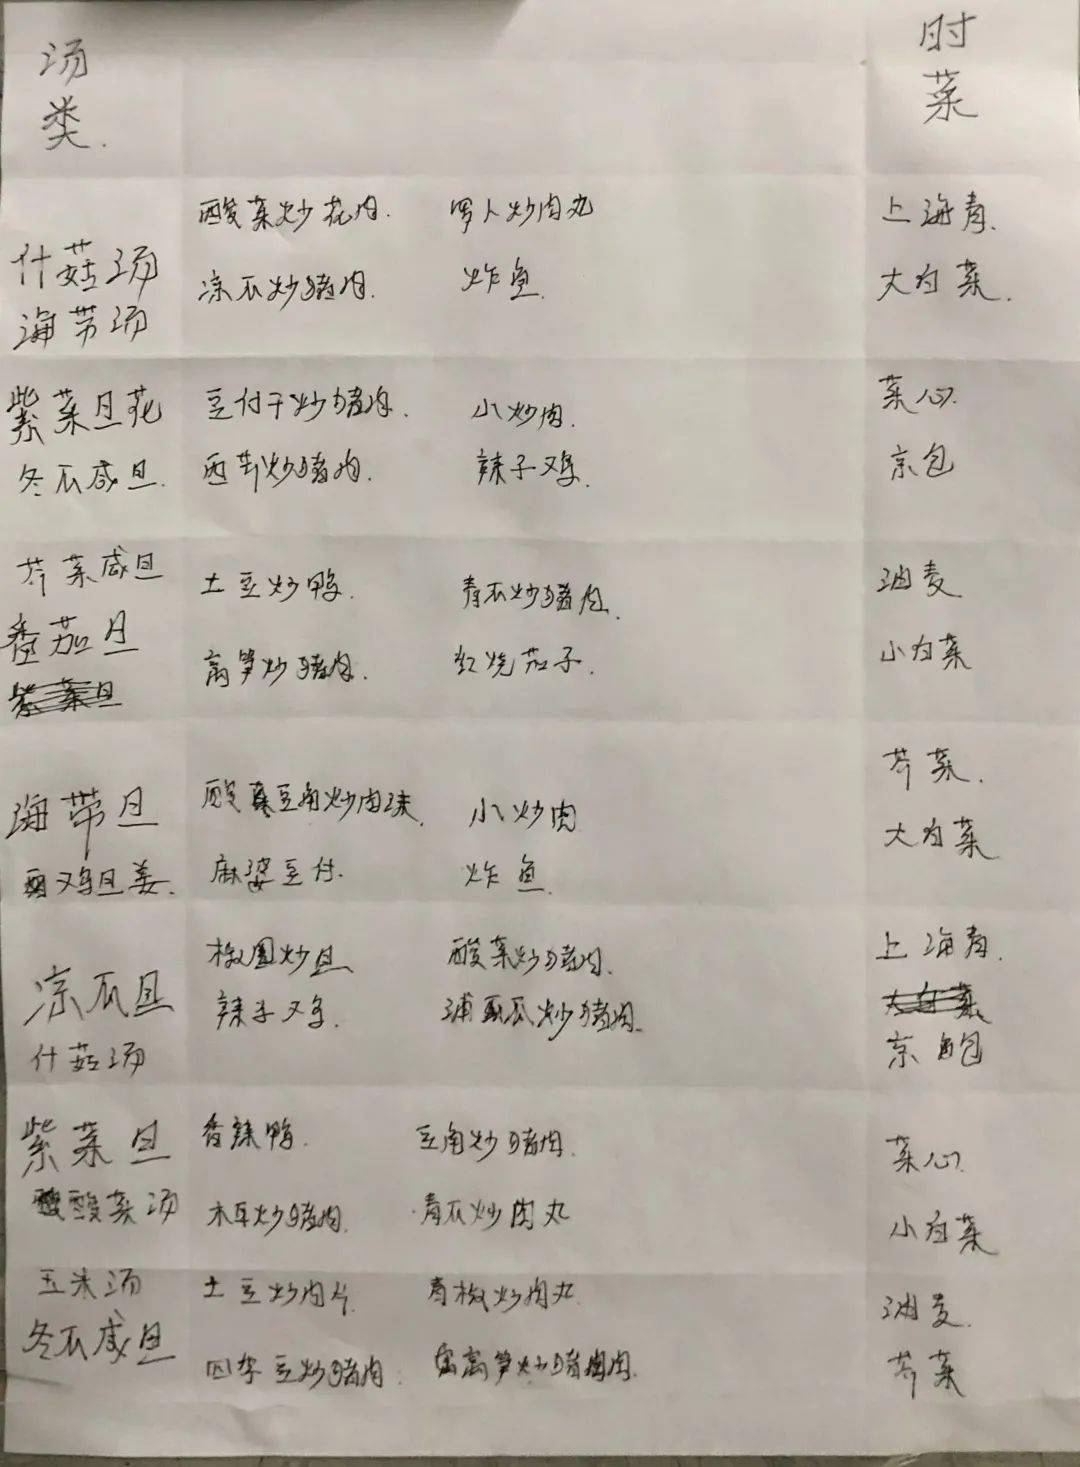 汤类.
时菜
酸菜炒花肉. 男人炒肉丸 上海青.
什菇汤 凉瓜炒猪肉. 炸鱼. 大白菜.
海带汤
紫菜旦花 豆付干炒猪肉. 小炒肉. 菜心.
冬瓜咸旦. 西芹炒猪肉. 辣子鸡. 京包
芥菜咸旦 土豆炒鸭. 青瓜炒猪肉. 油麦.
番茄旦 莴笋炒猪肉. 红烧茄子. 小白菜
紫菜旦
芥菜.
海带旦 酸菜豆角炒肉沫. 小炒肉 大白菜
鸡旦姜. 麻婆豆付. 炸鱼.
椒圈炒旦 酸菜炒猪肉. 上海青.
凉瓜旦 辣子鸡. 瓜炒猪肉. 大白菜
什菇汤 京包
紫菜旦 香辣鸭. 豆角炒猪肉. 菜心.
酸菜汤 木耳炒猪肉. 青瓜炒肉丸 小白菜
玉米汤 土豆炒肉片. 青椒炒肉丸. 油麦.
冬瓜咸旦 四季豆炒猪肉. 莴笋炒猪肉. 芥菜